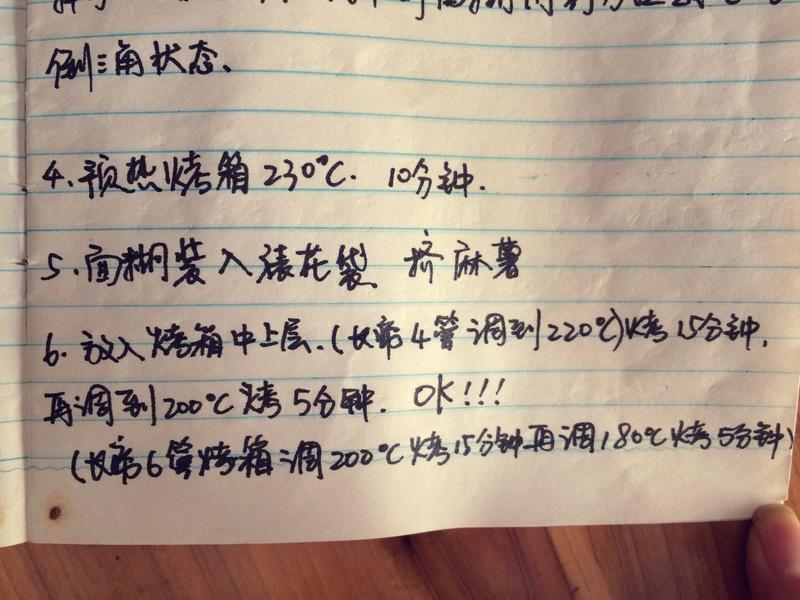 倒三角状态、
4.预热烤箱230℃. 10分钟.
5.面糊装入裱花袋 挤麻薯
6.放入烤箱中上层.(长帝4管调到220℃)烤15分钟.
再调到200℃烤5分钟. OK!!!
(长帝6管烤箱调200℃烤15分钟再调180℃烤5分钟)